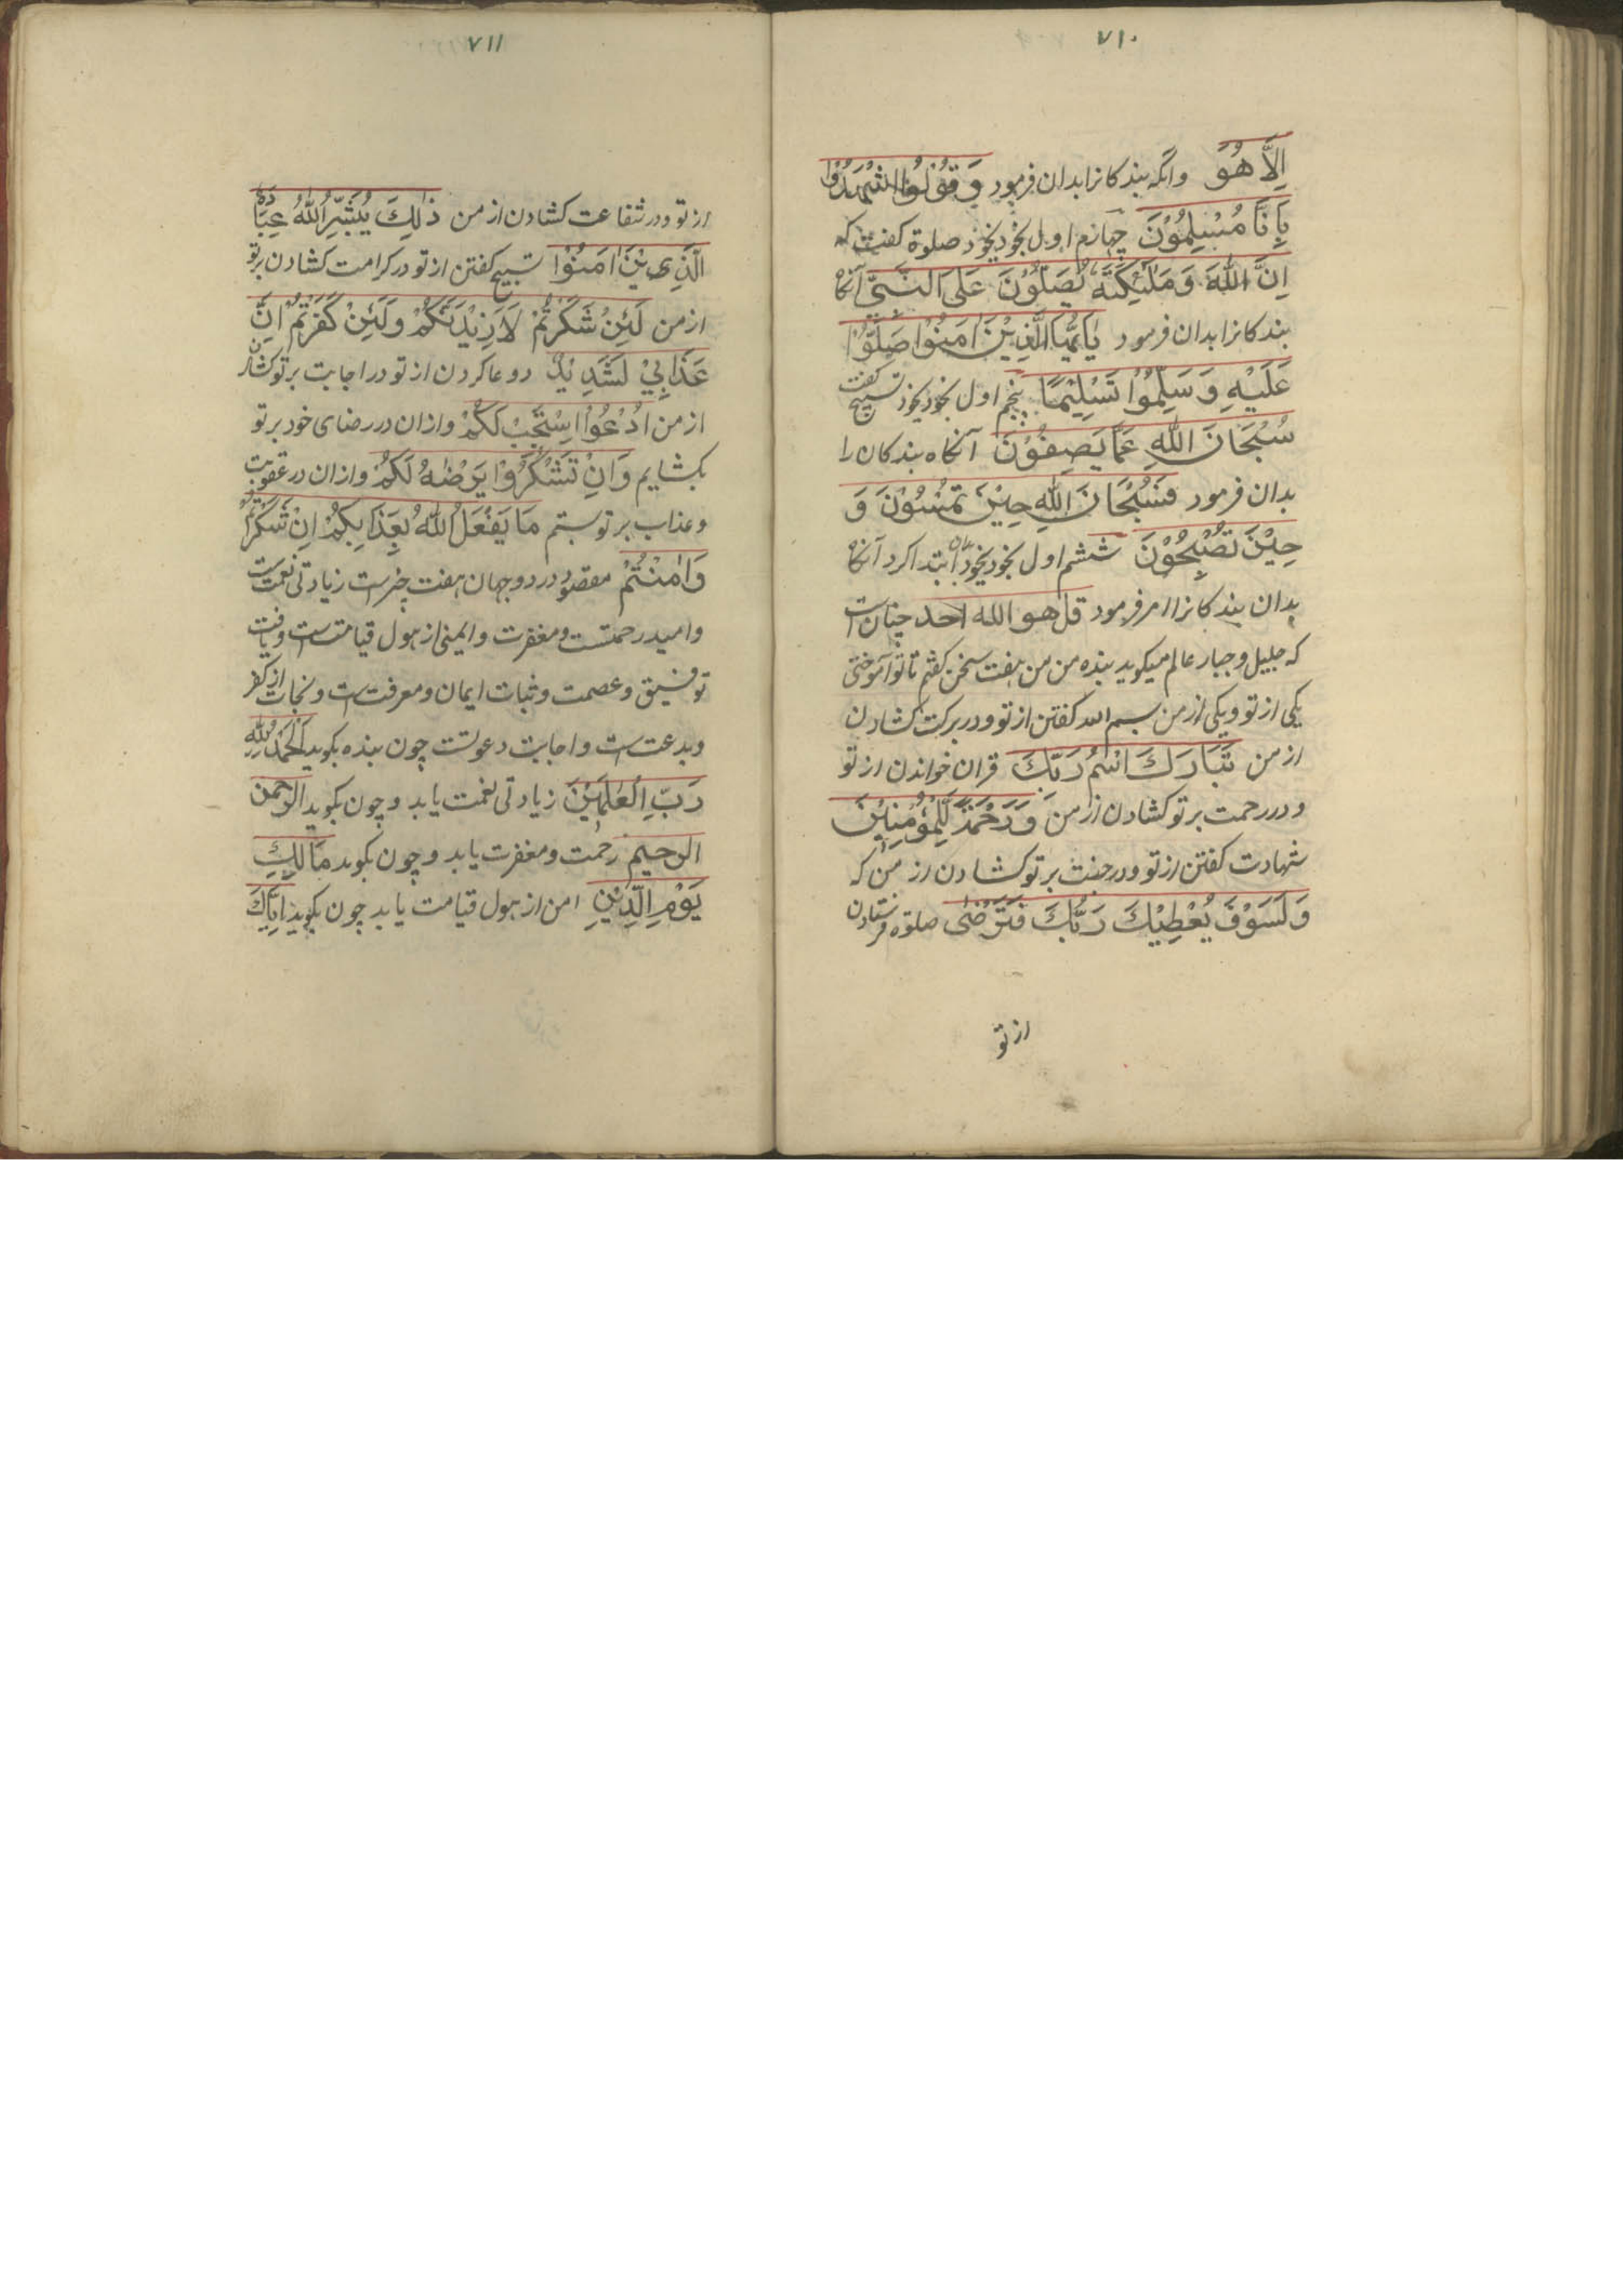 ۷۱۰
اِلَّا هُوَ وانگه بندکانرا بدان فرمود وَ قُوْلُوْا اشْهَدُوْا
بِاَنَّا مُسْلِمُوْنَ چهارم اول بخودیخود صلوة کفت که
اِنَّ اللّٰهَ وَمَلٰٓئِكَتَهٗ يُصَلُّوْنَ عَلَى النَّبِيِّ آنکاه
بندکانرا بدان فرمود يٰاَيُّهَا الَّذِيْنَ اٰمَنُوْا صَلُّوْا
عَلَيْهِ وَسَلِّمُوْا تَسْلِيْمًا پنجم اول بخودیخود تسبیح کفت
سُبْحَانَ اللّٰهِ عَمَّا يَصِفُوْنَ آنکاه بندکان را
بدان فرمود فَسُبْحَانَ اللّٰهِ حِيْنَ تُمْسُوْنَ وَ
حِيْنَ تُصْبِحُوْنَ ششم اول بخودیخود بدان ابتدا کرد آنکاه
بدان بندکانرا امر فرمود قل هو الله احد چنان است
که جلیل و جبار عالم میکوید بنده من من هفت سخن کفتم تا تو آموختی
یکی از تو و یکی از من بسم الله کفتن از تو و در برکت کشادن
از من تَبَارَكَ اسْمُ رَبِّكَ قران خواندن از تو
و در رحمت بر تو کشادن از من وَرَحْمَةٌ لِّلْمُؤْمِنِيْنَ
شهادت کفتن از تو و در جنت بر تو کشادن از من که
وَلَسَوْفَ يُعْطِيْكَ رَبُّكَ فَتَرْضٰى صلوة فرستادن
از تو
۷۱۱
از تو و در شفاعت کشادن از من ذٰلِكَ يُبَشِّرُ اللّٰهُ عِبَادَهُ
الَّذِيْنَ اٰمَنُوْا تسبیح کفتن از تو در کرامت کشادن بر تو
از من لَئِنْ شَكَرْتُمْ لَاَزِيْدَنَّكُمْ وَلَئِنْ كَفَرْتُمْ اِنَّ
عَذَابِيْ لَشَدِيْدٌ و دعا کردن از تو در اجابت بر تو کشادن
از من ادْعُوْا اَسْتَجِبْ لَكُمْ وازان در رضای خود بر تو
بکشایم وَاِنْ تَشْكُرُوْا يَرْضَهُ لَكُمْ وازان در عقوبت
و عذاب بر تو بستم مَا يَفْعَلُ اللّٰهُ بِعَذَابِكُمْ اِنْ شَكَرْتُمْ
وَاٰمَنْتُمْ مقصود در دو جهان هفت چیزست زیادتی نعمت است
و امید رحمتست و مغفرت و ایمنی از هول قیامتست و یافت
توفیق و عصمت و ثبات ایمان و معرفت است و نجات از کفر
و بدعت است و اجابت دعوتست چون بنده بکوید اَلْحَمْدُ لِلّٰهِ
رَبِّ الْعٰلَمِيْنَ زیادتی نعمت یابد و چون بکوید الرحمن
الرحیم رحمت و مغفرت یابد و چون بکوید مَالِكِ
يَوْمِ الدِّيْنِ امن از هول قیامت یابد چون بکوید اِيَّاكَ